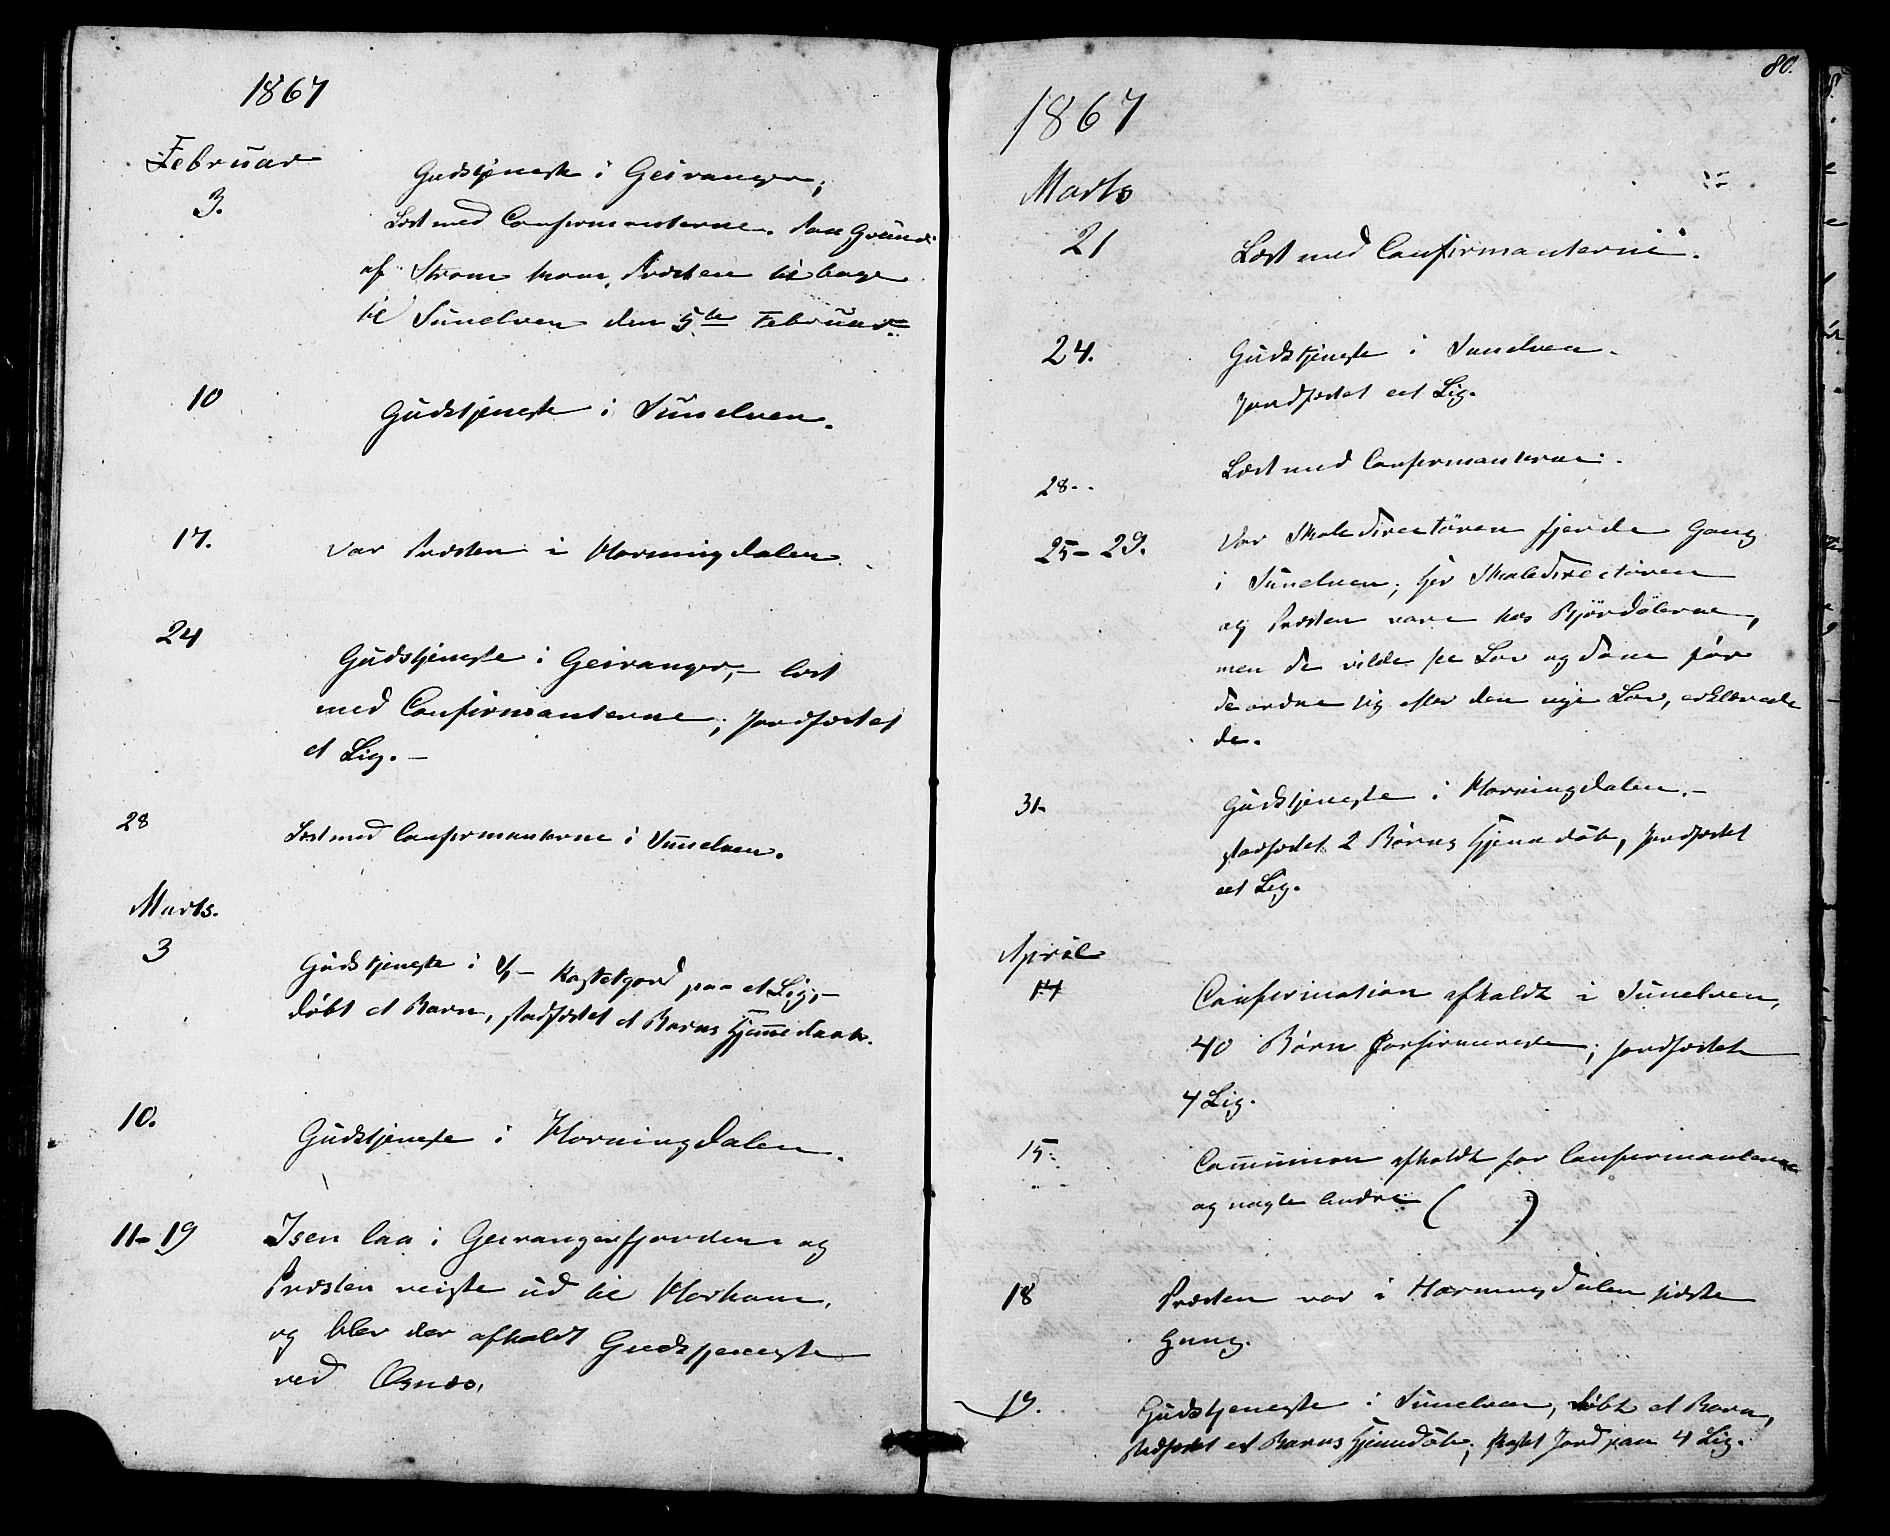 1867
Februar
3.
Gudstjeneste i Geiranger;
Læst med Confirmanterne. Paa Grund
af Strøm kom Præsten tilbage
til Sunelven den 5te Februar
10
Gudstjeneste i Sunelven.
17.
Var Præsten i Horningdalen.
24
Gudstjeneste i Geiranger, – læst
med Confirmanterne; Jordfæstet
et Lig. –
28
Læst med Confirmanterne i Sunelven.
Marts.
3
Gudstjeneste i S/– Kastet Jord paa et Lig, –
døbt et Barn, stadfæstet et Barns Hjemmedaab.
10.
Gudstjeneste i Horningdalen.
11–19
Isen laa i Geirangerfjorden og
Præsten reiste ud til
og blev der afholdt Gudstjeneste
ved
80.
1867
Marts
21
Læst med Confirmanterne.
24.
Gudstjeneste i Sunelven.
Jordfæstet eet Lig.
28.
Læst med Confirmanterne.
25–29.
Var Skoledirectøren fjerde Gang
i Sunelven; her Skoledirectøren
og Præsten vare hos Bjørdølerne,
men de vilde se Lov og Dom før
de ordne sig efter den nye Lov, erklærede
de.
31.
Gudstjeneste i Horningdalen. –
stadfæstet 2 Børns Hjemmedøb, Jordfæstet
eet Lig.
April
14
Confirmation afholdt i Sunelven,
40 Børn Confirmerede; jordfæstet
4 Lig.
15.
Communion afholdt for Confirmanterne
og nogle Andre ( )
18
Præsten var i Horningdalen sidste
Gang.
19.
Gudstjeneste i Sunelven, døbt et Barn,
stadfæstet et Barns Hjemmedøb; kastet Jord paa 4 Lig.